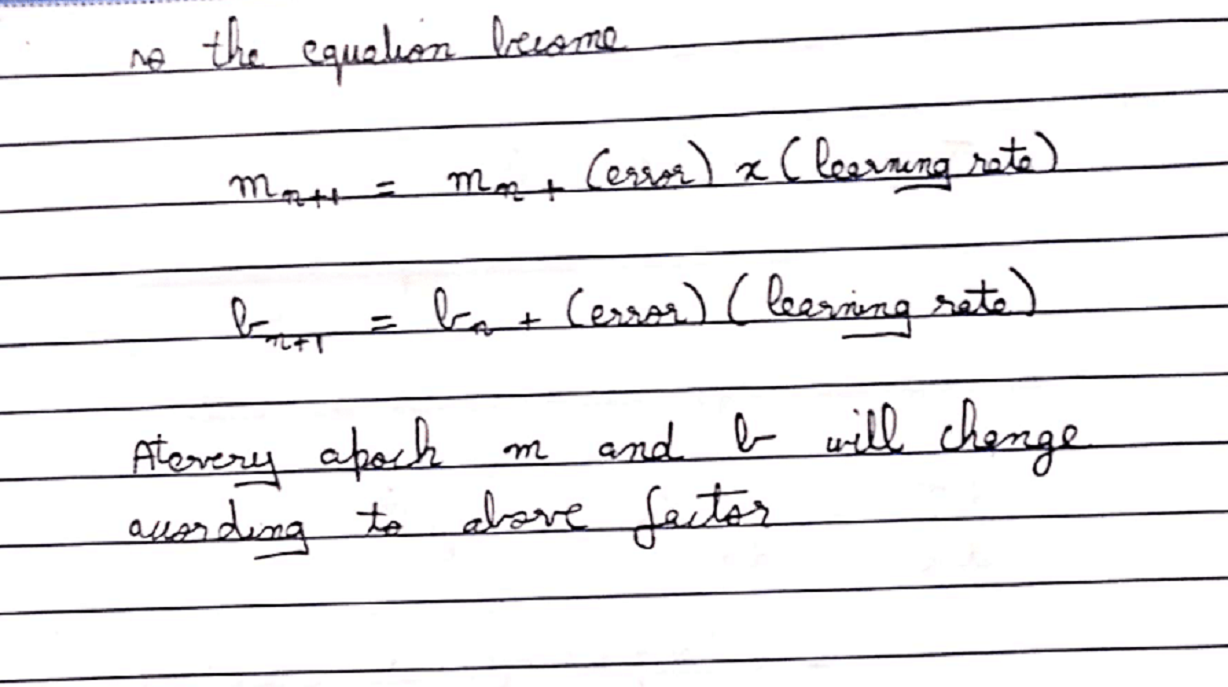 so the equation become
m_{n+1} = m_n + (error) x (learning rate)
b_{n+1} = b_n + (error) (learning rate)
At every apoch m and b will change
according to above factor